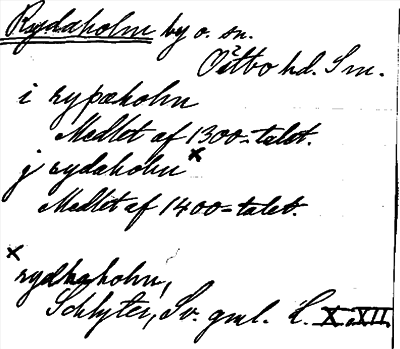 Rydaholm by o. sn.
Östbo hd. Sm.
i rypæholm
Medlet af 1300-talet.
j rydaholm x
Medlet af 1400-talet.
x
rydhaholm,
Schlyter, Sv. gml. L. X, XII